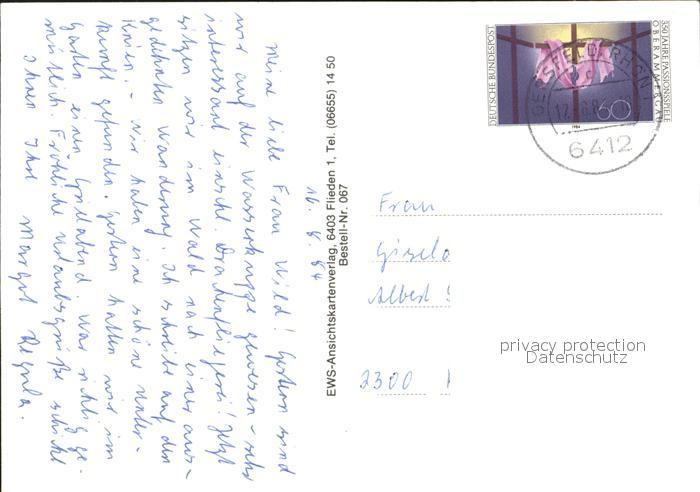 16. 8. 84
Meine liebe Frau Wild! Gestern sind
wir auf der Wasserkuppe gewesen - sehr
interessant einsehl. Drachenfliegerei! Jetzt
sitzen wir im Wald nach einer aus-
gedehnten Wanderung. Ich schreibe auf den
Knien. - Wir haben eine schöne Unter-
kunft gefunden. Gestern hatten wir im
Garten einen Grillabend. War richtig ge-
mütlich. Fröhliche Urlaubsgrüße schickt
Ihnen Ihre Margot Regula.
EWS-Ansichtskartenverlag, 6403 Flieden 1, Tel. (06655) 14 50
Bestell-Nr. 067
DEUTSCHE BUNDESPOST
350 JAHRE PASSIONSSPIELE
OBERAMMERGAU
60
1984
GERSFELD (RHÖN)
6412
Frau
Gisela
Albert
2300
privacy protection
Datenschutz